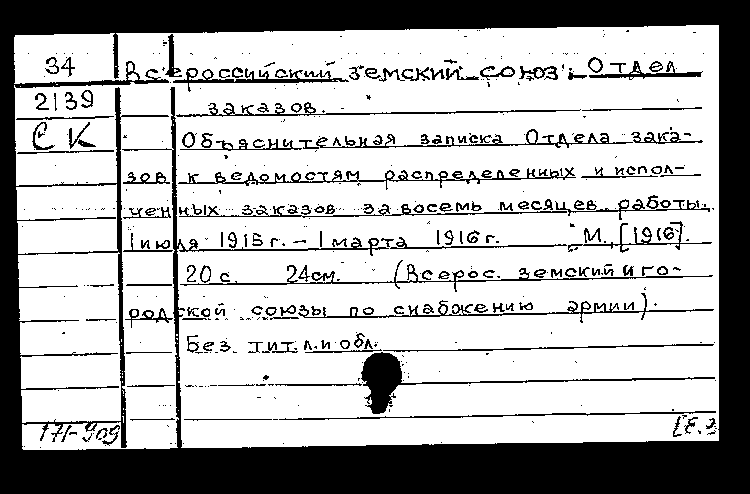 34 Всероссийский земский союз. Отдел
2139 заказов.
СК Объяснительная записка Отдела зака-
зов к ведомостям распределенных и испол-
ченных заказов за восемь месяцев работы.
1 июля 1915 г. – 1 марта 1916 г. М., [1916].
20 с. 24 см. (Всерос. земский и го-
родской союзы по снабжению армии).
Без тит. л. и обл.
171-909